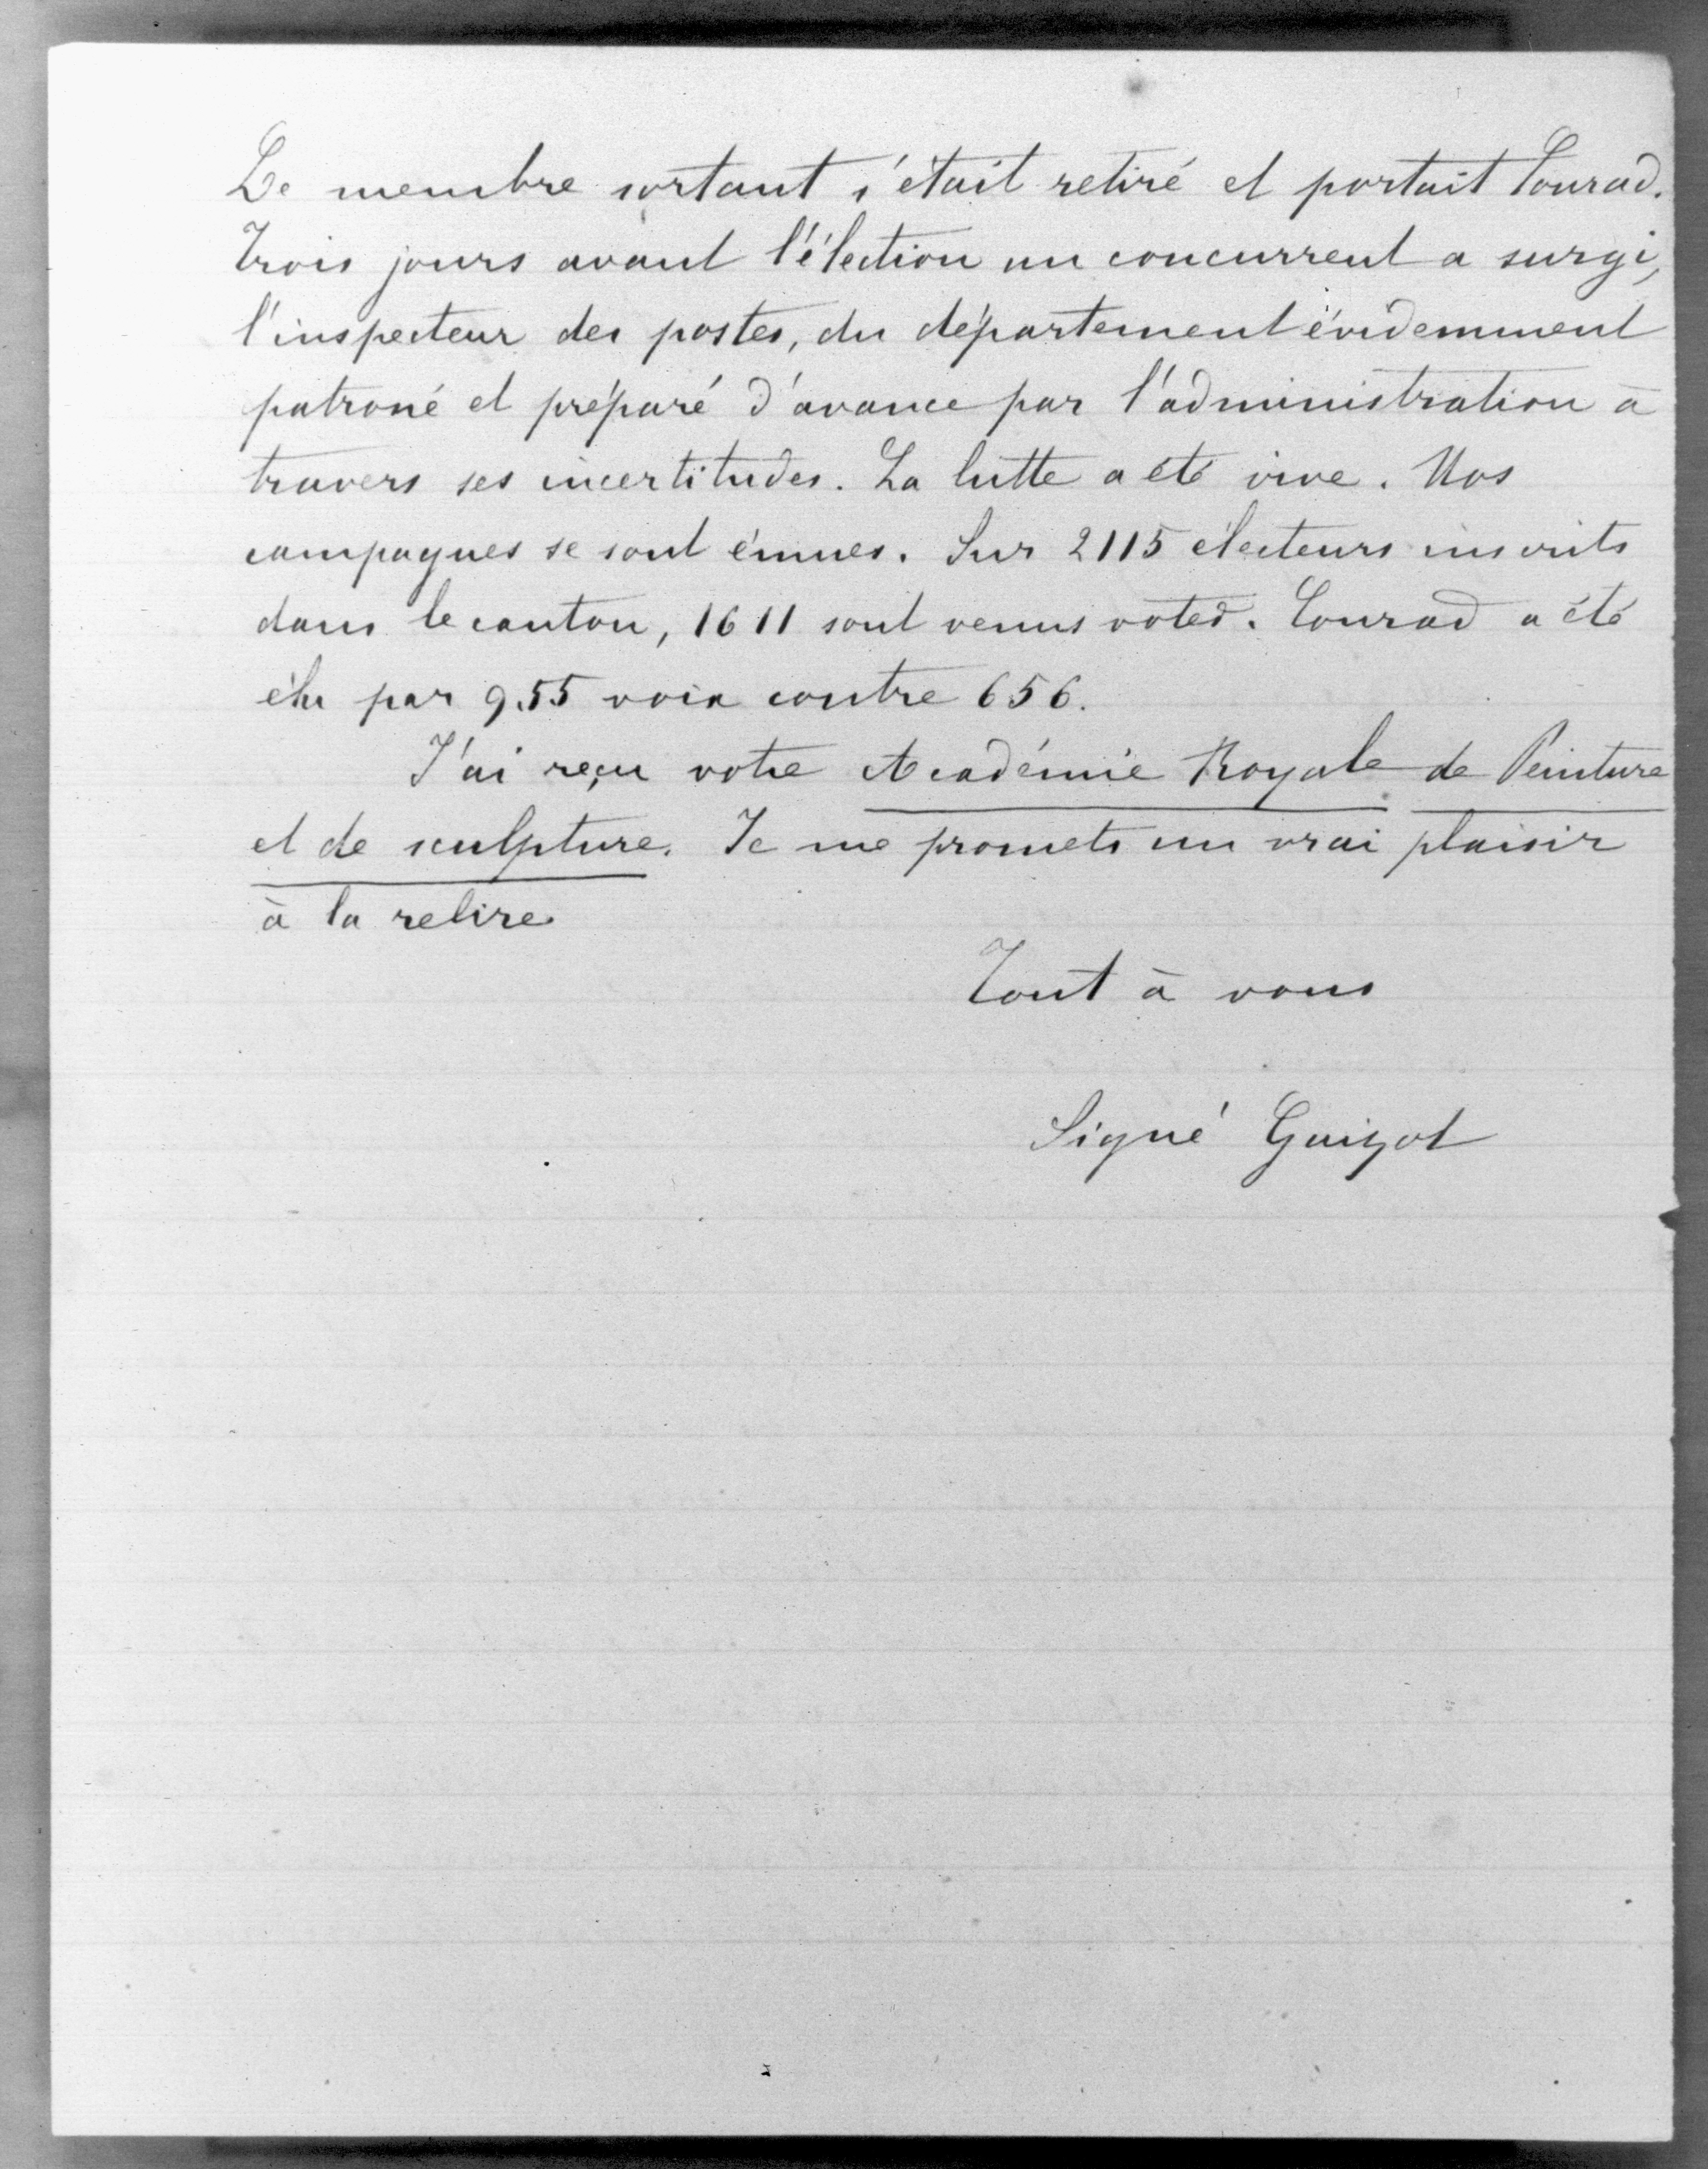 Le membre sortant s'était retiré et portait Conrad.
Trois jours avant l'élection un concurrent a surgi,
l'inspecteur des postes, du département évidemment
patroné et préparé d'avance par l'administration à
travers ses incertitudes. La lutte a été vive. Nos
campagnes se sont émues. Sur 2115 électeurs inscrits
dans le canton, 1611 sont venus voter. Conrad a été
élu par 955 voix contre 656.
J'ai reçu votre Académie Royale de Peinture
et de sculpture. Je me promets un vrai plaisir
à la relire
Tout à vous
Signé Guizot